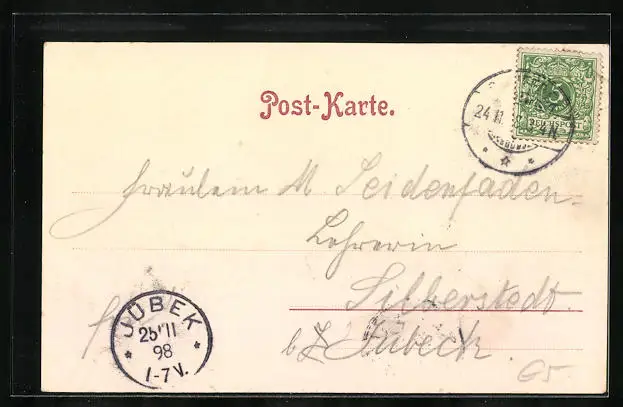 Post-Karte.
5
REICHSPOST
24.11.
4N
Fräulein M Seidenfaden
Lehrerin
Silberstedt.
b/ Jübeck.
JÜBEK
25/11
98
1-7V.
G5.